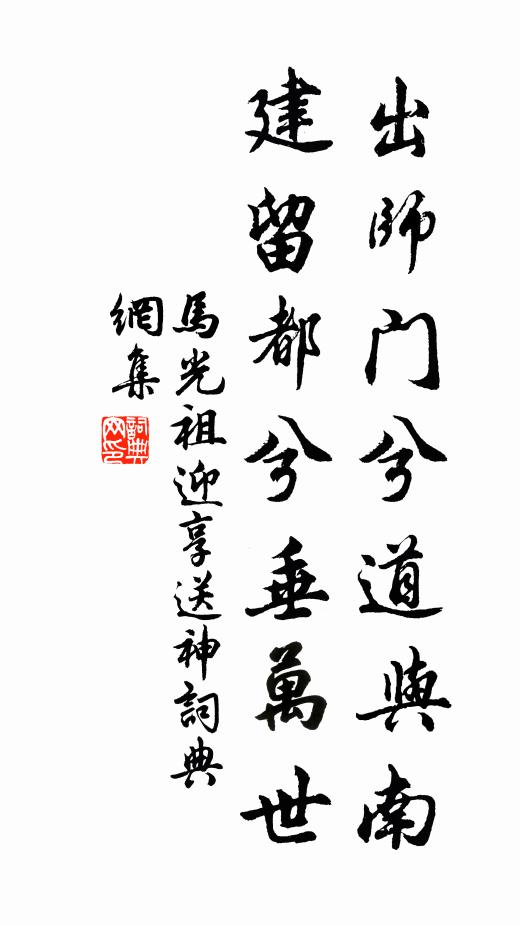 出師門兮道與南
建留都兮垂萬世
馬光祖迎享送神詞典
網集
詞典網印